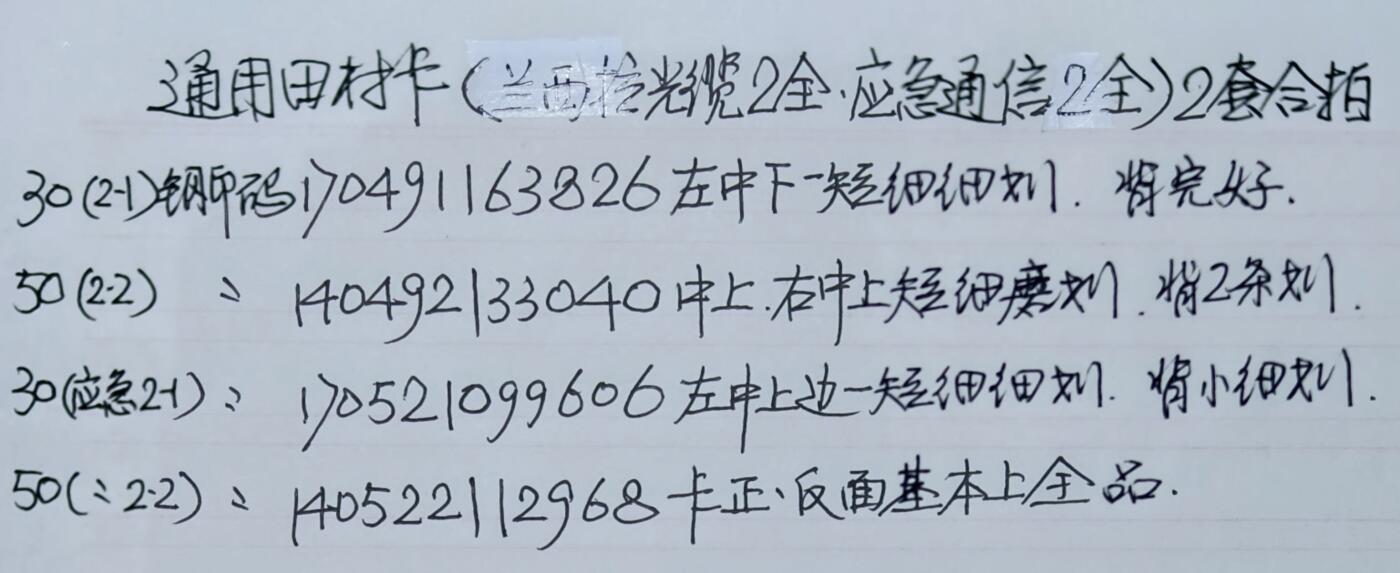 通用田村卡(兰西拉光缆2全·应急通信2全)2套合拍
30(2-1)钢印码170491163826左中下一短细细划. 背完好.
50(2-2) 〃 140492133040中上.右中上短细磨划. 背2条划.
30(应急2-1)〃 170521099606左中上边一短细细划. 背小细划.
50(〃2-2)〃 140522112968卡正、反面基本上全品.